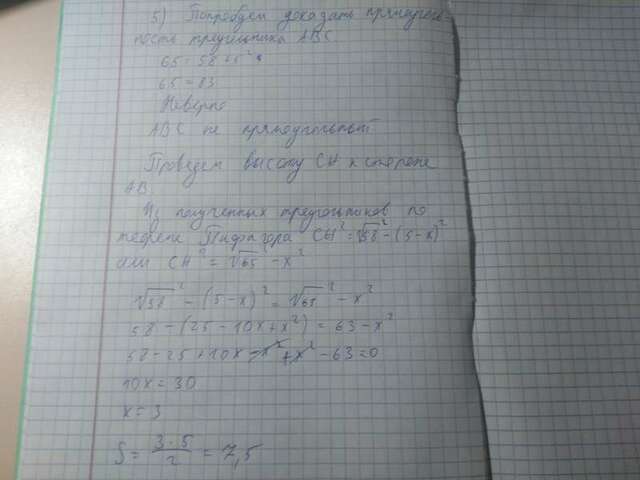 5) Попробуем доказать прямоуголь
ность треугольника ABC
65 = 58 + 5²
65 = 83
Неверно
ABC не прямоугольный
Проведем высоту CH к стороне
AB.
Из полученных треугольников по
теореме Пифагора CH² = √58² - (5-x)²
или CH² = √65² - x²
√58² - (5-x)² = √65² - x²
58 - (25 - 10x + x²) = 63 - x²
58 - 25 + 10x - x² + x² - 63 = 0
10x = 30
x = 3
S = 3·5/2 = 7,5